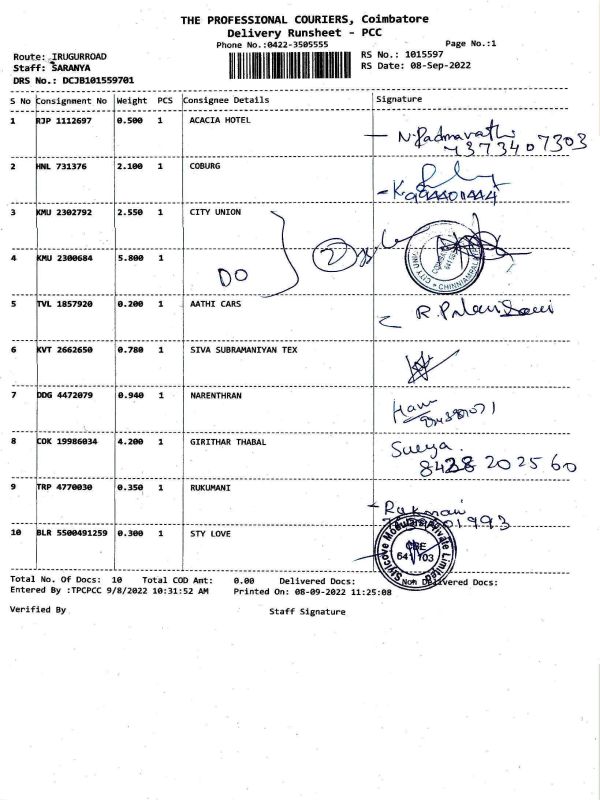 THE PROFESSIONAL COURIERS, Coimbatore
Delivery Runsheet - PCC
Phone No.:0422-3505555 Page No.:1
Route: IRUGURROAD RS No.: 1015597
Staff: SARANYA RS Date: 08-Sep-2022
DRS No.: DCJB101559701
S No Consignment No Weight PCS Consignee Details Signature
1 RJP 1112697 0.500 1 ACACIA HOTEL
N.Padmavathi
7373407303
2 HNL 731376 2.100 1 COBURG
3 KMU 2302792 2.550 1 CITY UNION
4 KMU 2300684 5.800 1
DO
5 TVL 1857920 0.200 1 AATHI CARS
6 KVT 2662650 0.780 1 SIVA SUBRAMANIYAN TEX
7 DDG 4472079 0.940 1 NARENTHRAN
8 COK 19986034 4.200 1 GIRITHAR THABAL
Surya.
8428202560
9 TRP 4770030 0.350 1 RUKUMANI
10 BLR 5500491259 0.300 1 STY LOVE
Stylcove Modulars Private Limited
CBE
641 703
Total No. Of Docs: 10 Total COD Amt: 0.00 Delivered Docs: Non Delivered Docs:
Entered By :TPCPCC 9/8/2022 10:31:52 AM Printed On: 08-09-2022 11:25:08
Verified By Staff Signature